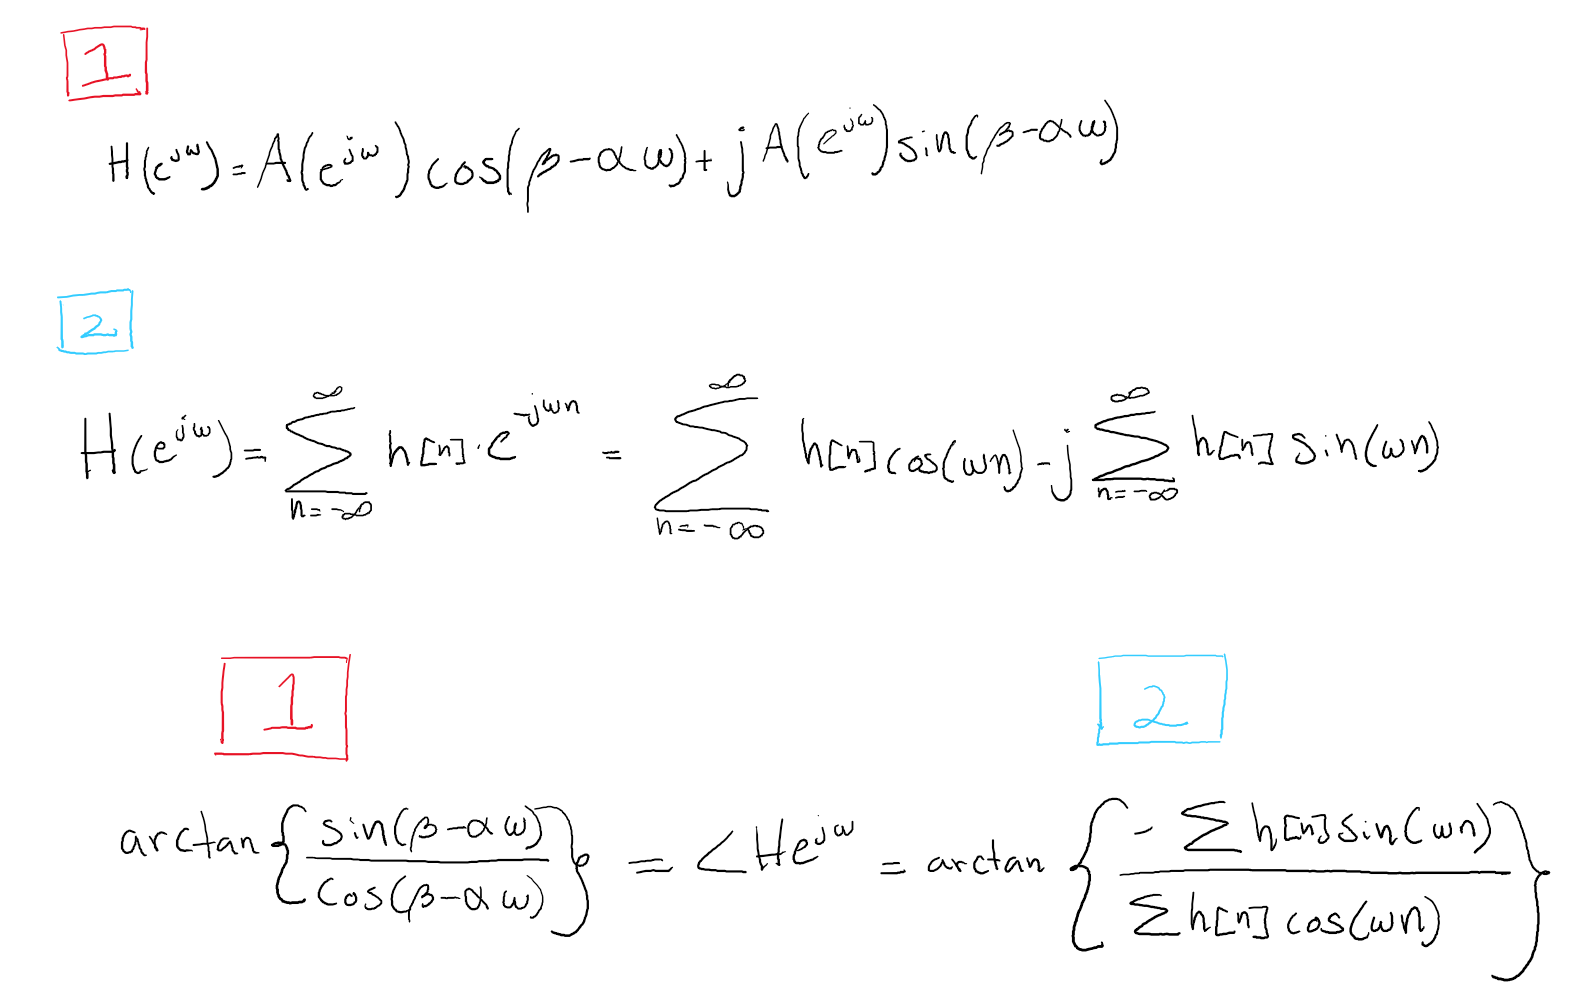 1
H(e^{jω}) = A(e^{jω}) cos(β-αω) + j A(e^{jω}) sin(β-αω)
2
H(e^{jω}) = ∑_{n=-∞}^{∞} h[n]·e^{-jωn} = ∑_{n=-∞}^{∞} h[n] cos(ωn) - j ∑_{n=-∞}^{∞} h[n] sin(ωn)
1 2
arctan{ sin(β-αω) / cos(β-αω) } = ∠He^{jω} = arctan{ -∑ h[n] sin(ωn) / ∑ h[n] cos(ωn) }